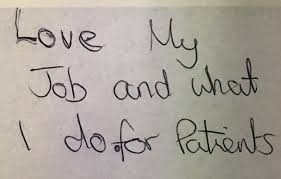 Love My
Job and what
I do for Patients